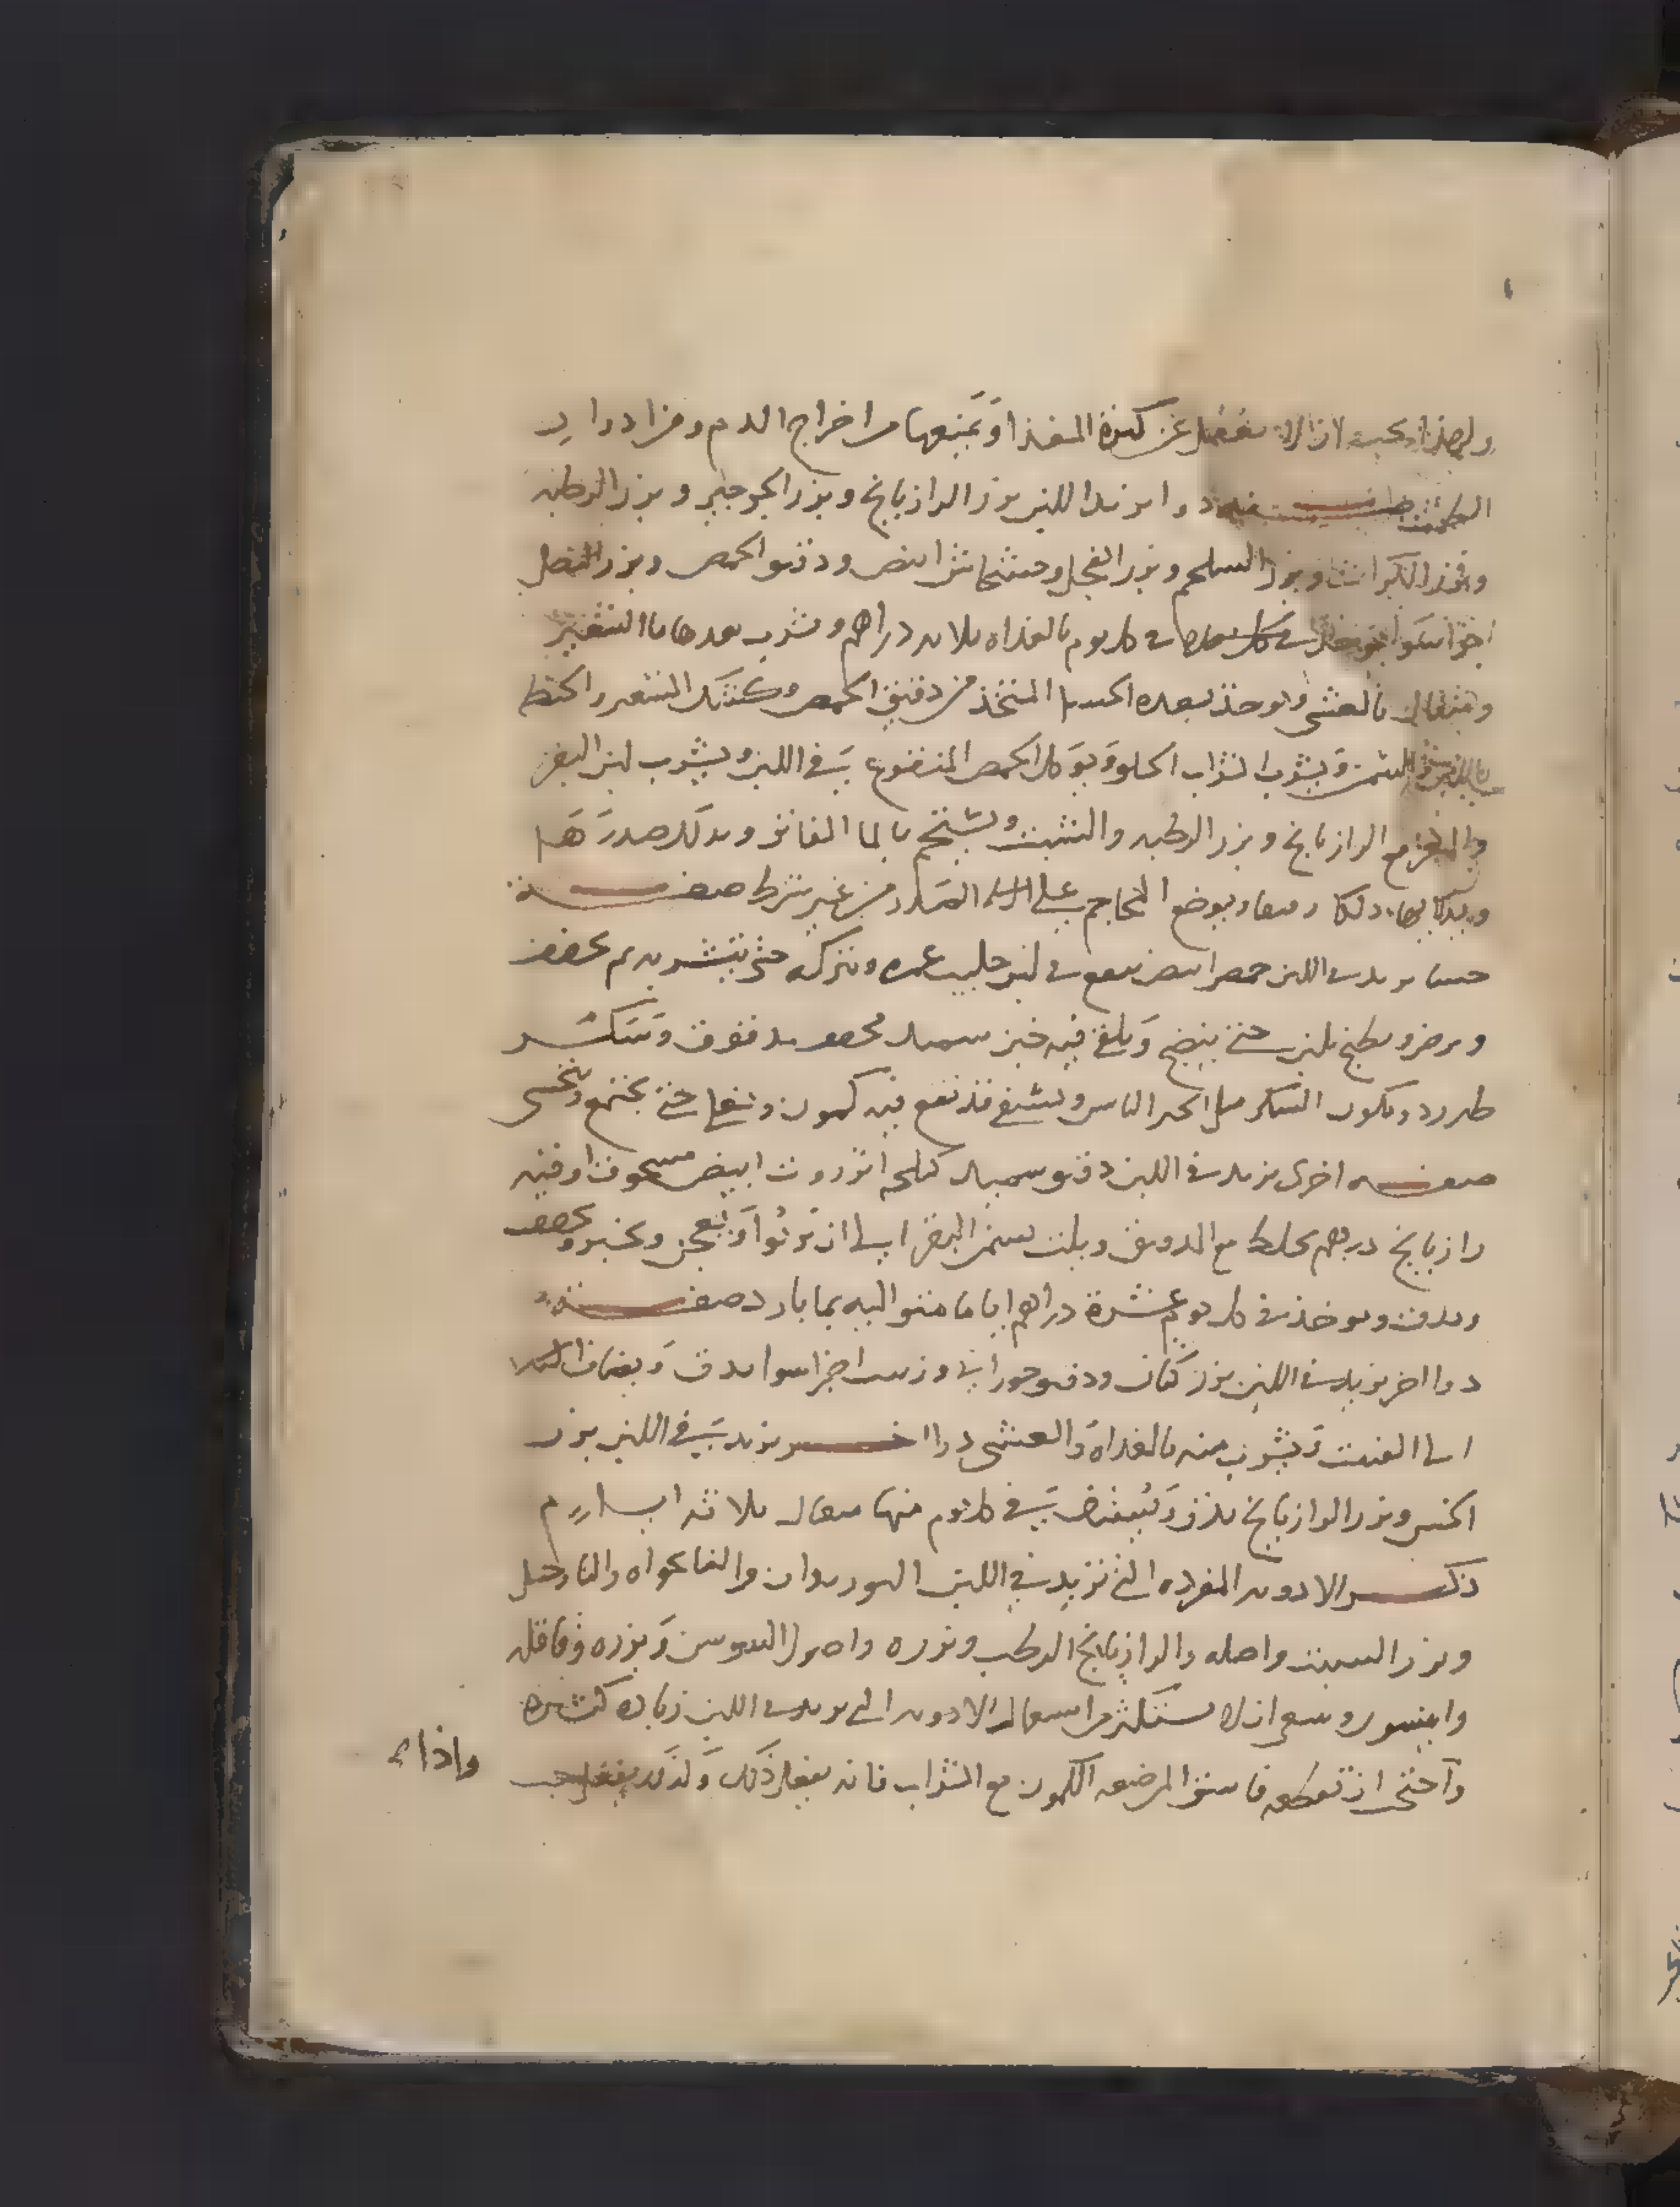 ولهذا يجب ان لا تغفل عن كثرة الغذا وتمنعها من اخراج الدم ومن ادوار
الطمث صفة دوا يزيد اللبن بزر الرازيانج وبزر الجرجير وبزر الرطبه
وبزر الكراث وبزر السلجم وبزر الفجل وخشخاش ابيض ودقيق الحمص وبزر البصل
اجزا سوا يوخذ في كل يوم بالغداه ثلاثه دراهم وتشرب بعدها ما الشعير
ومثقالين بالعشي ويوخذ بعده الحسا المتخذ من دقيق الحمص وكشك الشعير والحنطه
باللبن والسمن ويشرب الشراب الحلو ويوكل الحمص المنقوع في اللبن ويشرب لبن البقر
والمعز مع الرازيانج وبزر الرطبه والشبث ويستحم بالما الفاتر ويدلك صدرها
وثدياها دلكا رفيقا ويوضع المحاجم على الصدر من غير شرط صفة
حسا يزيد في اللبن حمص ابيض ينقع في لبن حليب غمره ويترك حتى يتشربه ثم يجفف
ويرض ويطبخ بلبن حتى ينضج ويلقى فيه خبز سميد مجفف مدقوق وسكر
طبرزد ويكون السكر مثل الخبز اليابس ويسقى قد نقع فيه كمون ويغلى حتى يجتمع ويتحسى
صفة اخرى يزيد في اللبن دقيق سميد كيلجه انزروت ابيض مسحوق اوقيه
رازيانج درهم يخلط مع الدقيق ويلت بسمن البقر الى ان تروا ويعجن ويخبز ويجفف
ويدق ويوخذ في كل يوم عشرة دراهم اياما متواليه بما بارد صفة
دوا اخر يزيد في اللبن بزر كتان ودقيق حوارى وزبيب اجزا سوا يدق ويضاف
الى الفتيت ويشرب منه بالغداة والعشي دوا اخر يزيد في اللبن بزر
الخس وبزر الرازيانج يدق ويستف في كل يوم منها مثقال ثلاثه ايام
ذكر الادويه المفرده التي تزيد في اللبن البوزيدان والفاغواه والنارجيل
وبزر الشبث واصله والرازيانج الرطب وبزره واصول السوسن وبزره وقاقله
وانيسون وينبغي ان لا يستكثر من استعمال الادويه التي تزيد في اللبن زياده كثيره
واحتجي ان تقطعه فاسق المرضعه الكمون مع الشراب فانه يفعل ذلك وكذلك يفعل حب
واذا